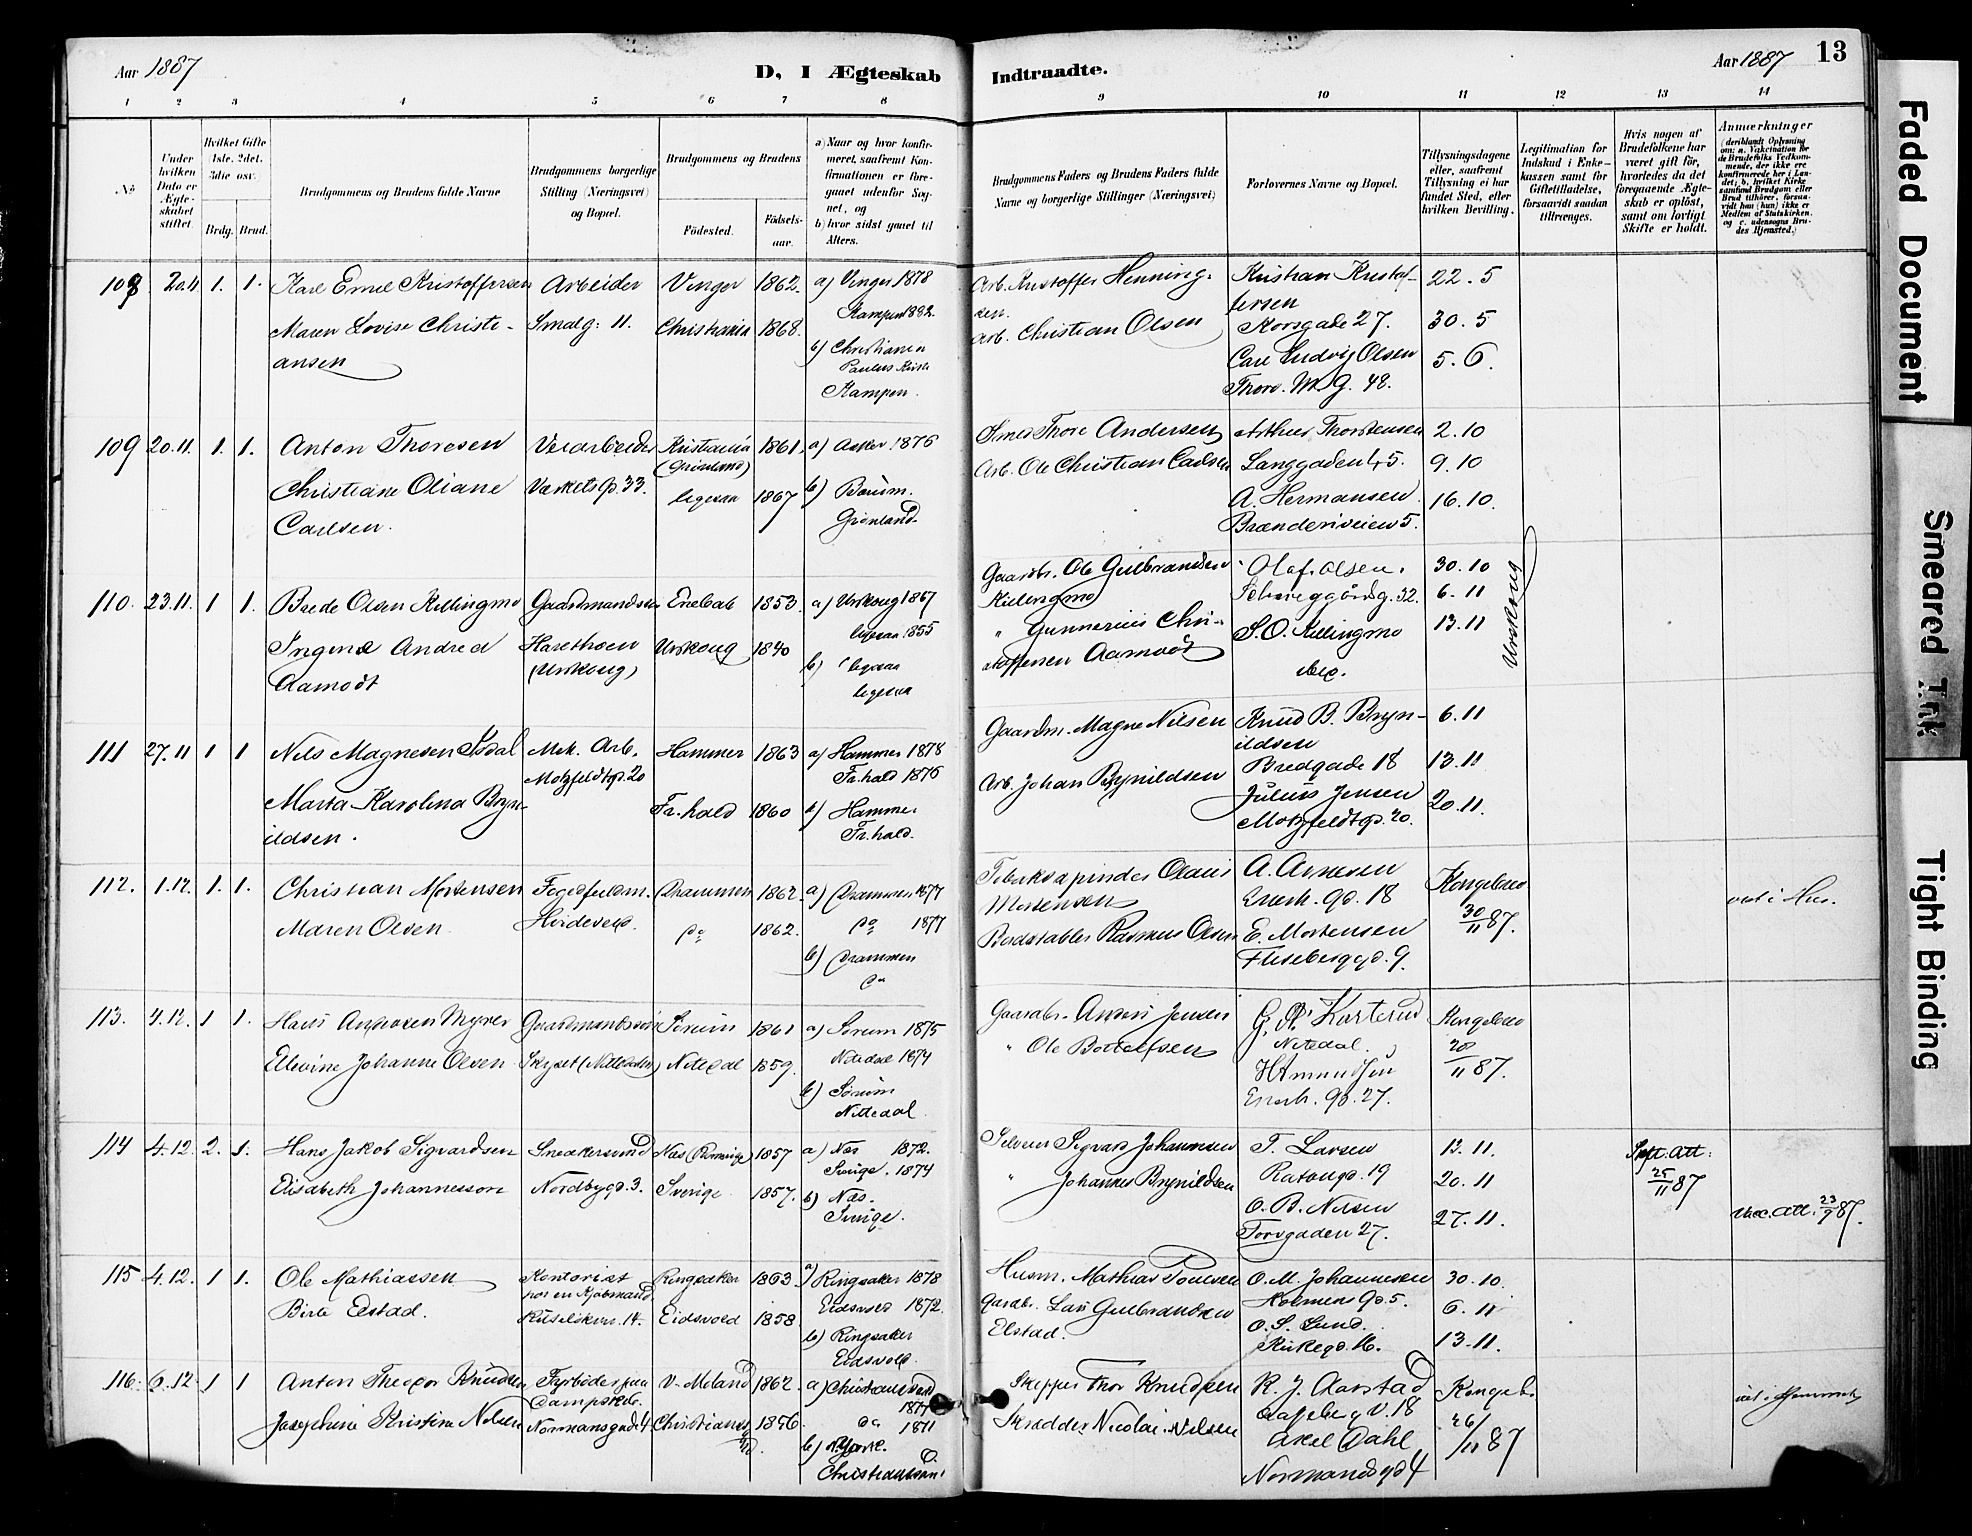 Aar 1887
D, I Ægteskab
Indtraadte.
Aar 1887
13
1 2 3 4 5 6 7 8 9 10 11 12 13 14
No
Under hvilken Dato er Ægteskabet stiftet.
Hvilket Gifte 1ste, 2det, 3die osv.
Brdg. Brud.
Brudgommens og Brudens fulde Navne
Brudgommens borgerlige Stilling (Næringsvei) og Bopæl.
Brudgommens og Brudens
Födested.
Födselsaar.
a) Naar og hvor konfirmeret, saafremt Konfirmationen er foregaaet udenfor Sognet, og
b) hvor sidst gaaet til Alters.
Brudgommens Faders og Brudens Faders fulde Navne og borgerlige Stillinger (Næringsvei)
Forlovernes Navne og Bopæl.
Tillysningsdagene eller, saafremt Tillysning ei har fundet Sted, efter hvilken Bevilling.
Legitimation for Indskud i Enkekassen samt for Giftetilladelse, forsaavidt saadan tiltrænges.
Hvis nogen af Brudefolkene har været gift för, hvorledes da det foregaaende Ægteskab er oplöst, samt om lovligt Skifte er holdt.
Anmærkninger
108 20.11 1. 1. Karl Emil Kristoffersen Arbeider Vinger 1862. a) Vinger 1878
Kampen 1882.
Maren Lovise Christiansen Smalg: 11. Christiania 1868. b) Christiania
Paulus Kirke
Kampen.
Arb. Kristoffer Henningsen.
Arb. Christian Olsen
Kristian Kristoffersen
Korsgade 27.
Carl Ludvig Olsen
Thorv. M. G. 48.
22.5
30.5
5.6.
109 20.11. 1. 1. Anton Thoresen Kristiania 1861. a) Asker 1876
(Grönland)
Christiane Oliane Værketsgd. 33. ligesaa 1867 b) Bærum.
Carlsen. Grönland.
Thore Andersen
Arb. Ole Christian Carlsen
Arthur Thorstensen
Langgaden 45.
A. Hermansen
Brænderiveien 5.
2.10
9.10
16.10.
110. 23.11. 1 1. Brede Olsen Killingmo Gaardmandssøn Enebak 1853. a) Urskoug 1867
ligesaa 1855
Andrea Harethoen Urskoug 1840 b) ligesaa
Aamodt (Urskoug) ligesaa
Gaardbr. Ole Gulbrandsen
Killingmo
" Gunnerius Christoffersen Aamodt
Olaf Olsen.
S. O. Killingmo
30.10
6.11
13.11
Urskoug
111 27.11 1 1 Nils Magnesen Mek. Arb. Hammer 1863 a) Hammer 1878
Motzfeldtgd. 20 Fr.hald 1876
Marta Karolina Brynildsen. Fr.hald 1860 b) Hammer
Fr.hald.
Gaardm. Magne Nilsen
Arb. Johan Brynildsen
Knud B. Brynildsen
Bredgade 18
Julius Jensen
Motzfeldtgd. 20.
6.11
13.11
20.11.
112. 1.12. 1. 1. Christian Mortensen Drammen 1862. a) Drammen 1877
Maren Olsen. Do 1862. Do 1877
b) Drammen
Do
Tobakspinder Olaus
Mortensen
Rasmus Olsen
A. Arnesen
Enerh. gd. 18
E. Mortensen
Flisebergd. 9.
Kongebrev
30/11 87.
viet i Hus.
113. 4.12. 1 1. Hans Andersen Myrer Gaardmandssøn Sörum 1861 a) Sörum 1875
Nitedal 1874
Elevine Johanne Olsen Skyset (Nittedalen) Nitedal 1859. b) Sörum
Nittedal.
Gaardbr. Anders Jensen
" Ole Bottolfsen
Nitedal.
H Amundsen
Enerh. gd. 27.
Kongebrev
28/11 87.
114 4.12. 2. 1. Hans Jakob Sigvardsen Snedkersvend Næs (Romerige) 1857 a) Næs 1872.
Sverige. 1874
Elisabeth Johannesson Nordbygd. 3. Sverige 1857. b) Næs.
Sverige.
Selveier Sigvard Johannesen
" Johannes Brynildsen
T. Larsen
O. B. Nilsen
Torvgaden 27.
13.11.
20.11
27.11.
Skift: att:
25/11 87
Vacc. att. 23/9 87.
115 4.12. 1 1. Ole Mathiassen Kontorist Ringsaker 1863 a) Ringsaker 1878
hos en Kjöbmand Eidsvold 1872.
Birte Elstad. 14. Eidsvold 1858. b) Ringsaker
Eidsvold.
Husm. Mathias Poulsen
Gaardbr. Lars Gulbrandsen
Elstad.
O. M. Johannesen
Holmens gd. 5.
O. S. Lund.
Kirkegd. 16.
30.10.
6.11
13.11.
116. 6.12 1 1 Anton Theodor Knudsen Fyrböder paa V. Moland 1862. a) Christianssand
Dampskib. 1877
Josephine Kristine Nilsen Normansgade 4 Christianssand 1856. Do 1871
b) N. York.
Christianssand
Skipper Thor Knudsen
Skrædder Nicolai Nilsen
K. J. Aarstad
18
Axel Dahl
Normandsgd 4
Kongeb.
26/11 87
viet i
Faded Document
Smeared Ink
Tight Binding